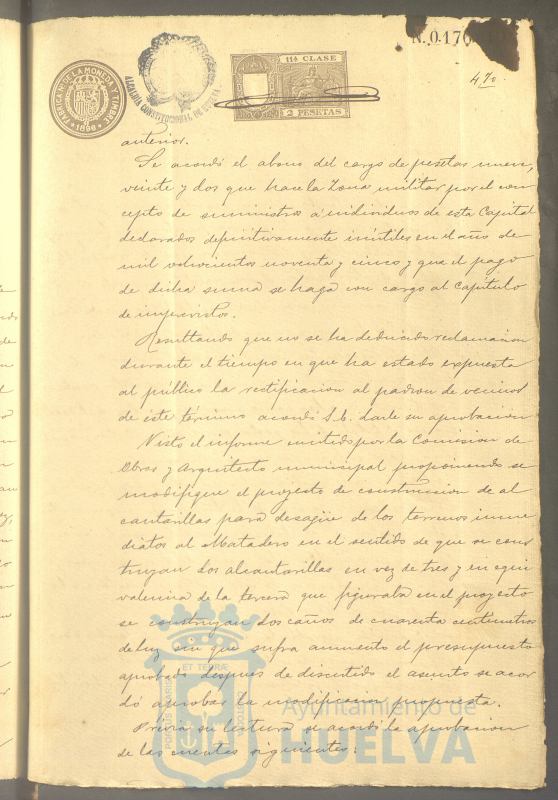 N. 0.170
470
FABRICA Nal DE LA MONEDA Y TIMBRE
1896
ALCALDIA CONSTITUCIONAL DE HUELVA
11ª CLASE
2 PESETAS
anterior.
Se acordó el abono del cargo de pesetas nueve,
veinte y dos que hace la Zona militar por el con
cepto de suministros á individuos de esta Capital
declarados definitivamente inútiles en el año de
mil ochocientos noventa y cinco y que el pago
de dicha suma se haga con cargo al Capítulo
de imprevistos.
Resultando que no se ha deducido reclamacion
durante el tiempo en que ha estado expuesta
al público la rectificacion al padron de vecinos
de este término acordó S. E. darle su aprobacion
Visto el informe emitido por la Comision de
Obras y Arquitecto municipal proponiendo se
modifique el proyecto de construccion de al
cantarillas para desagüe de los terrenos inme
diatos al Matadero en el sentido de que se cons
truyan dos alcantarillas en vez de tres y en equi
valencia de la tercera que figuraba en el proyecto
se construyan dos caños de cuarenta centimetros
de luz sin que sufra aumento el presupuesto
aprobado despues de discutido el asunto se acor
dó aprobar la modificacion propuesta.
Previa su lectura se acordó la aprobacion
de las cuentas siguientes:
PORTUS MARIS
ET TERRÆ
CUSTODIA
Ayuntamiento de
HUELVA